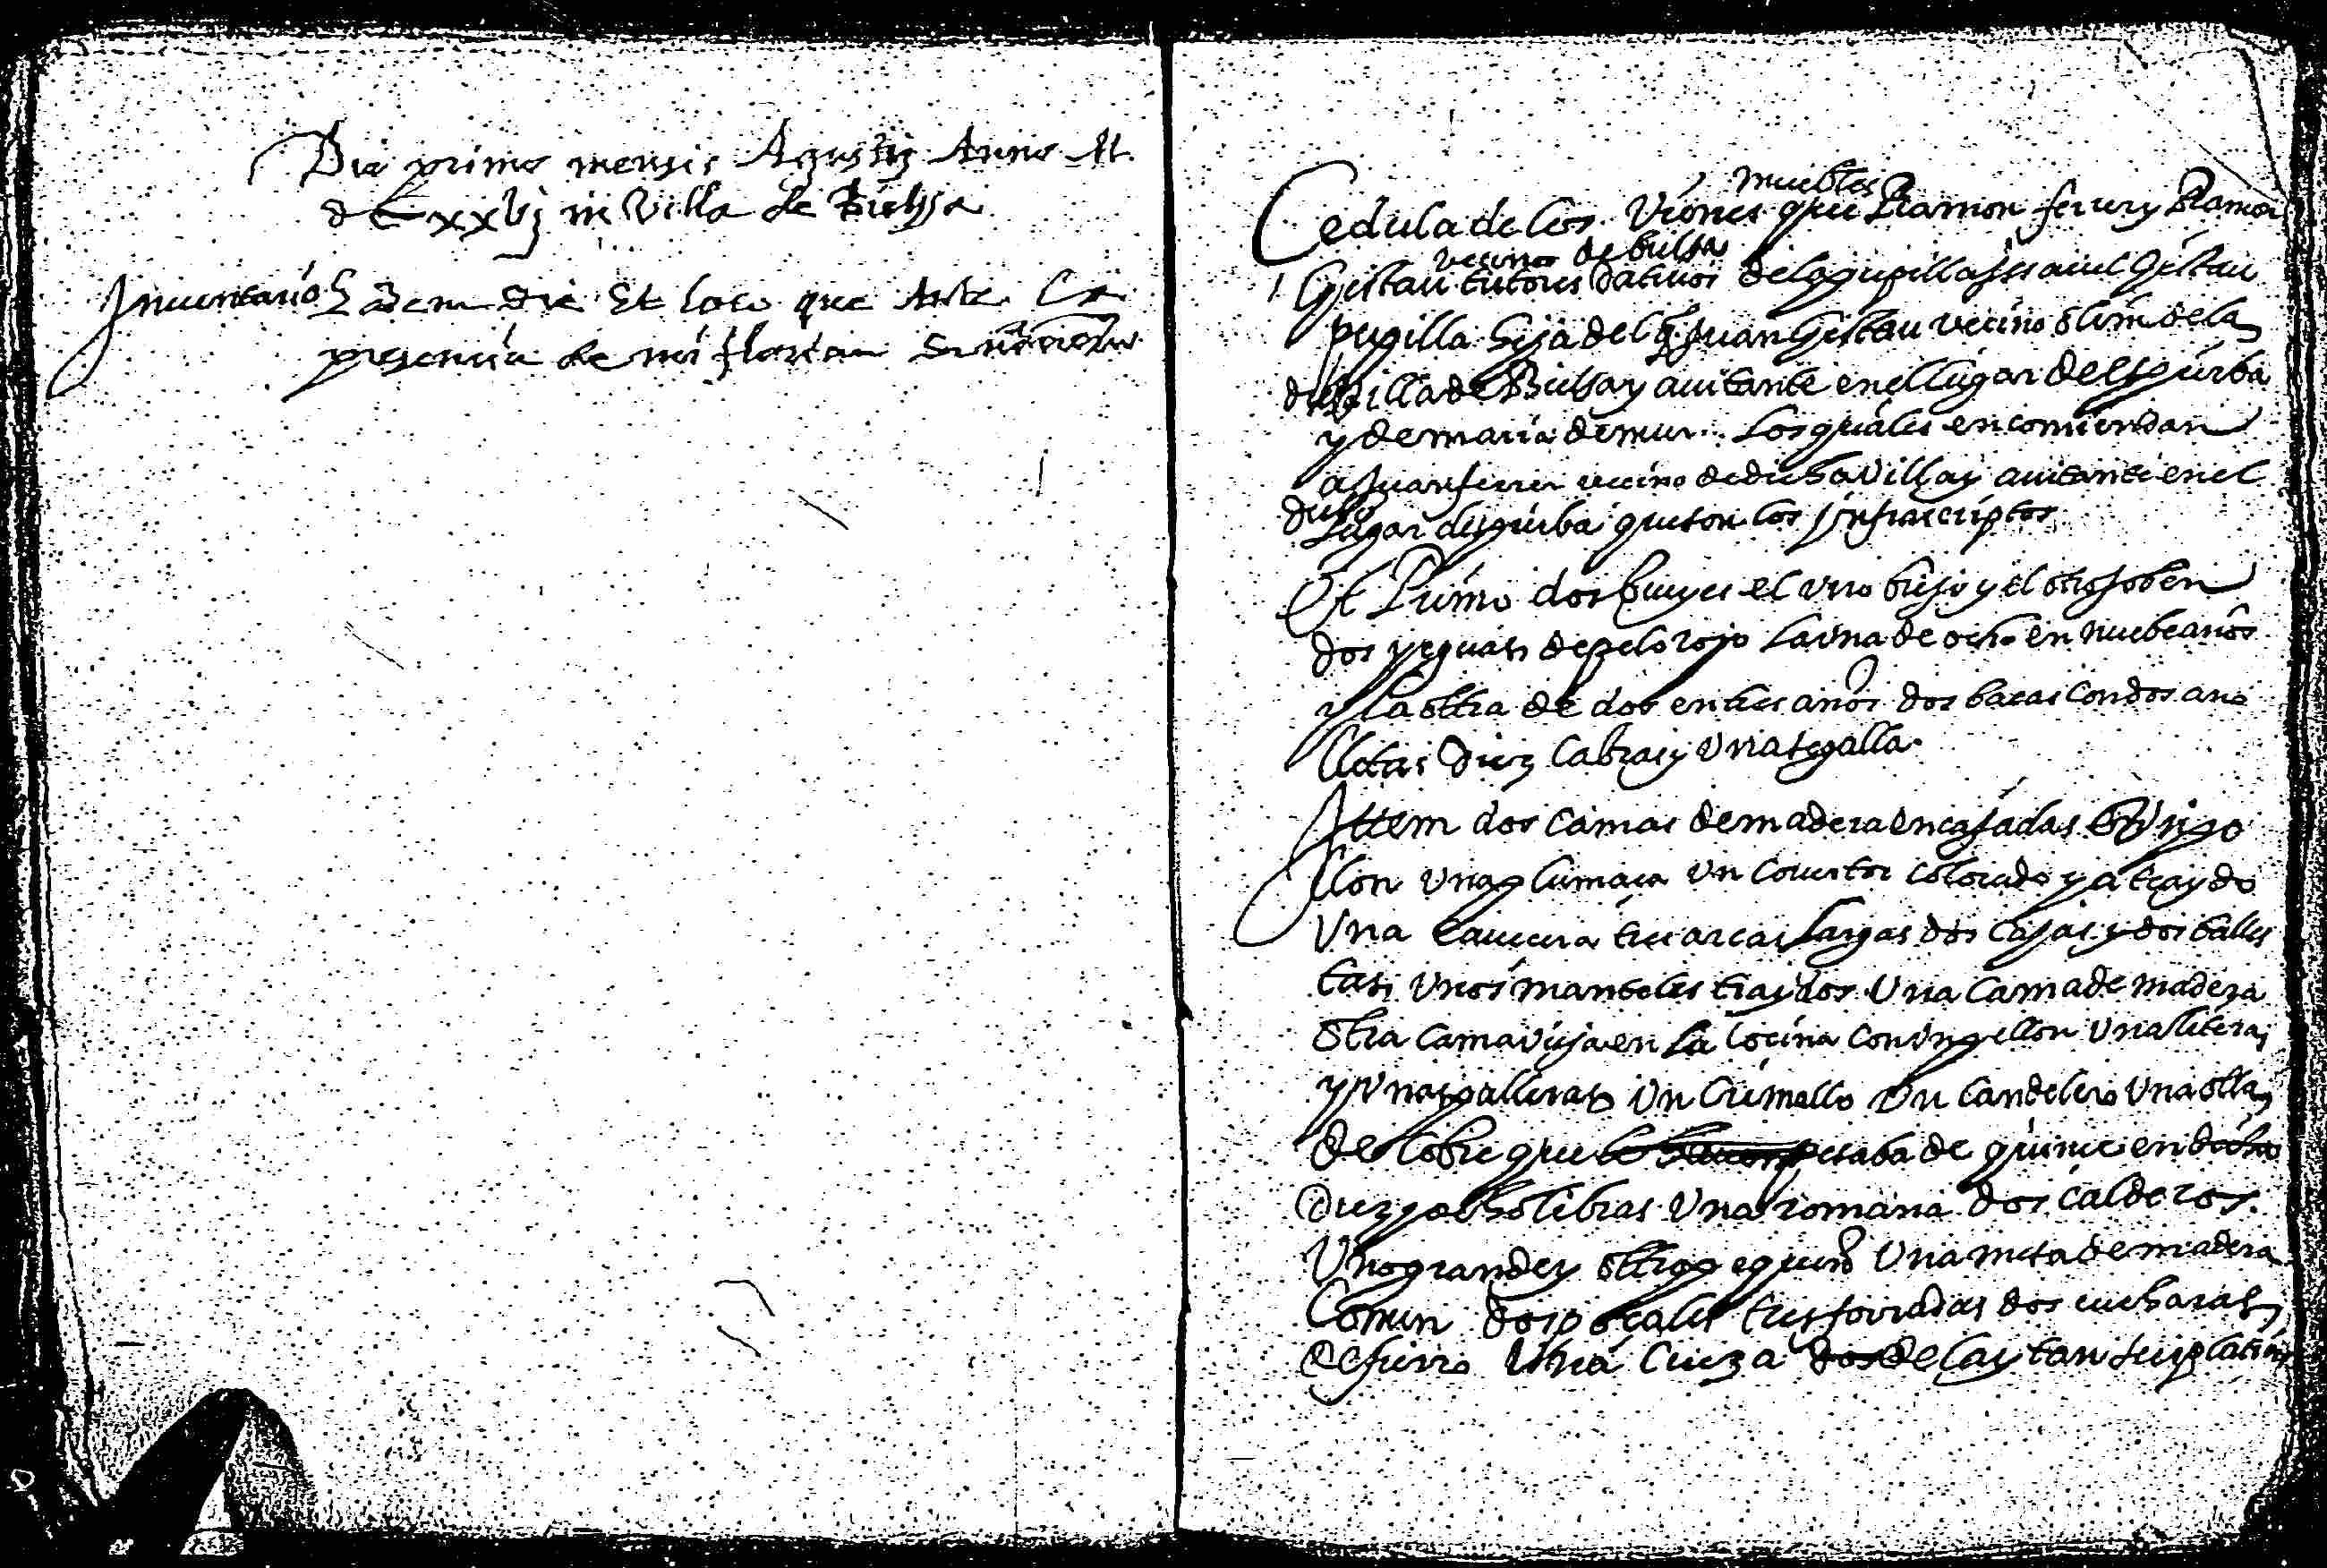 Dia primo mensis Agusti Anno M
dCxxvj in Villa de Bielssa
Inuentario Eadem die Et loco que Ante La
presencia de mi florian
muebles
Cedula de los Vienes que Ramon ferrer y Ramon
vecinos de bielsa
Gistau tutores dativos de la pupilla Gistau
pupilla hija del q. Juan Gistau vecino olim de la
dicha villa de Bielsa y auitante en el lugar de espierba
y de maria demur. Los quales encomiendan
a Juan ferrer vecino de dicha Villa y auitante en el
dicho
Lugar despierba que son los infrascriptos
Et Primo dos bueyes el vno biejo y el otro joben
dos yeguas de pelo rojo la vna de ocho en nuebe años
y la ottra de dos en tres años dos bacas con dos ano
lletas diez cabras y Vna segalla
Ittem dos camas de madera encajadas
llon Vna plumaça Vn couertor colorado ya traydo
Vna tres arcas largas dos cajas y dos balles
tas Vnos manteles traydos Vna cama de madera
otra cama vieja en la cocina con Vn pellon Vna litera
y Vn cremallo Vn candelero Vna olla
de cobre que pesaba de quince en dicho
diez y ocho libras Vna romana dos calderos
Vno grande y ottro pequeño Vna mesa de madera
Comun dos tres forradas dos cucharas
de fierro Vna dos de layton seis platos